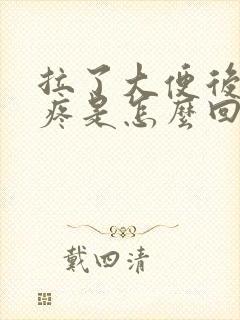 拉了大便後
疼是怎麼回
戴四清